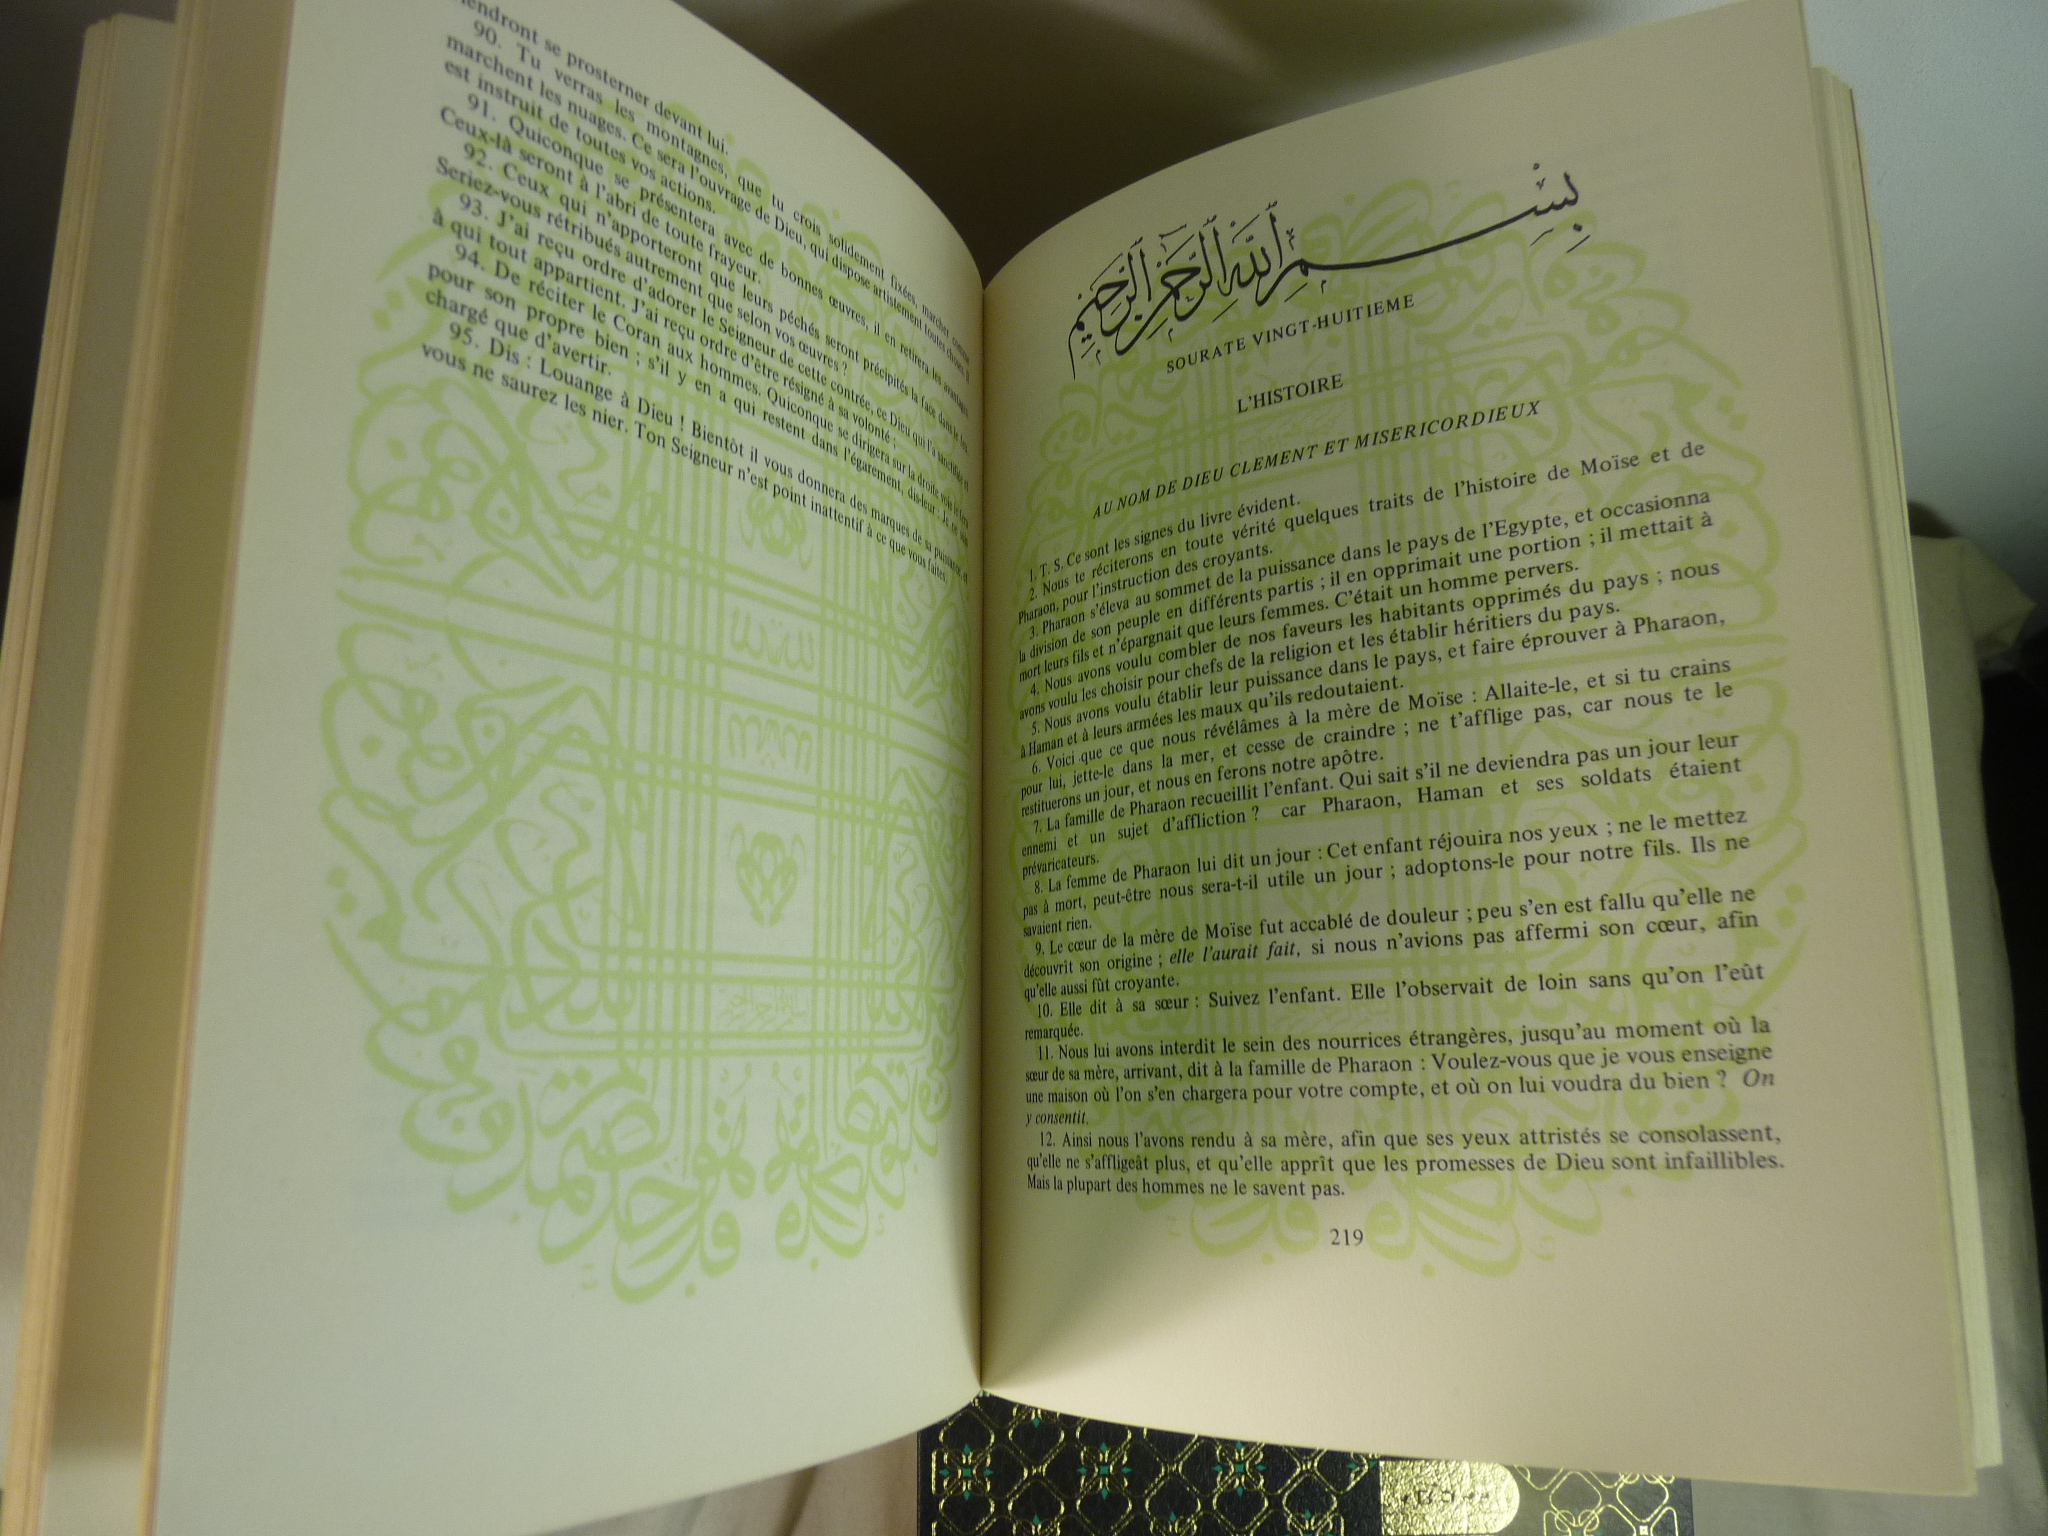 se prosterner devant lui.
90. Tu verras les montagnes, que tu crois solidement fixées, marcher comme
marchent les nuages. Ce sera l'ouvrage de Dieu, qui dispose artistement toutes choses. Il
est instruit de toutes vos actions.
91. Quiconque se présentera avec de bonnes œuvres, il en retirera les avantages
Ceux-là seront à l'abri de toute frayeur.
92. Ceux qui n'apporteront que leurs péchés seront précipités la face dans le feu.
Seriez-vous rétribués autrement que selon vos œuvres ?
93. J'ai reçu ordre d'adorer le Seigneur de cette contrée, ce Dieu qui l'a sanctifiée et
à qui tout appartient. J'ai reçu ordre d'être résigné à sa volonté ;
94. De réciter le Coran aux hommes. Quiconque se dirigera sur la droite voie le fera
pour son propre bien ; s'il y en a qui restent dans l'égarement, dis-leur : Je ne suis
chargé que d'avertir.
95. Dis : Louange à Dieu ! Bientôt il vous donnera des marques de sa puissance, et
vous ne saurez les nier. Ton Seigneur n'est point inattentif à ce que vous faites.
بِسْمِ اللَّهِ الرَّحْمَٰنِ الرَّحِيمِ
SOURATE VINGT-HUITIEME
L'HISTOIRE
AU NOM DE DIEU CLEMENT ET MISERICORDIEUX
1. T. S. Ce sont les signes du livre évident.
2. Nous te réciterons en toute vérité quelques traits de l'histoire de Moïse et de
Pharaon, pour l'instruction des croyants.
3. Pharaon s'éleva au sommet de la puissance dans le pays de l'Egypte, et occasionna
la division de son peuple en différents partis ; il en opprimait une portion ; il mettait à
mort leurs fils et n'épargnait que leurs femmes. C'était un homme pervers.
4. Nous avons voulu combler de nos faveurs les habitants opprimés du pays ; nous
avons voulu les choisir pour chefs de la religion et les établir héritiers du pays.
5. Nous avons voulu établir leur puissance dans le pays, et faire éprouver à Pharaon,
à Haman et à leurs armées les maux qu'ils redoutaient.
6. Voici que ce que nous révélâmes à la mère de Moïse : Allaite-le, et si tu crains
pour lui, jette-le dans la mer, et cesse de craindre ; ne t'afflige pas, car nous te le
restituerons un jour, et nous en ferons notre apôtre.
7. La famille de Pharaon recueillit l'enfant. Qui sait s'il ne deviendra pas un jour leur
ennemi et un sujet d'affliction ? car Pharaon, Haman et ses soldats étaient
prévaricateurs.
8. La femme de Pharaon lui dit un jour : Cet enfant réjouira nos yeux ; ne le mettez
pas à mort, peut-être nous sera-t-il utile un jour ; adoptons-le pour notre fils. Ils ne
savaient rien.
9. Le cœur de la mère de Moïse fut accablé de douleur ; peu s'en est fallu qu'elle ne
découvrît son origine ; elle l'aurait fait, si nous n'avions pas affermi son cœur, afin
qu'elle aussi fût croyante.
10. Elle dit à sa sœur : Suivez l'enfant. Elle l'observait de loin sans qu'on l'eût
remarquée.
11. Nous lui avons interdit le sein des nourrices étrangères, jusqu'au moment où la
sœur de sa mère, arrivant, dit à la famille de Pharaon : Voulez-vous que je vous enseigne
une maison où l'on s'en chargera pour votre compte, et où on lui voudra du bien ? On
y consentit.
12. Ainsi nous l'avons rendu à sa mère, afin que ses yeux attristés se consolassent,
qu'elle ne s'affligeât plus, et qu'elle apprît que les promesses de Dieu sont infaillibles.
Mais la plupart des hommes ne le savent pas.
219